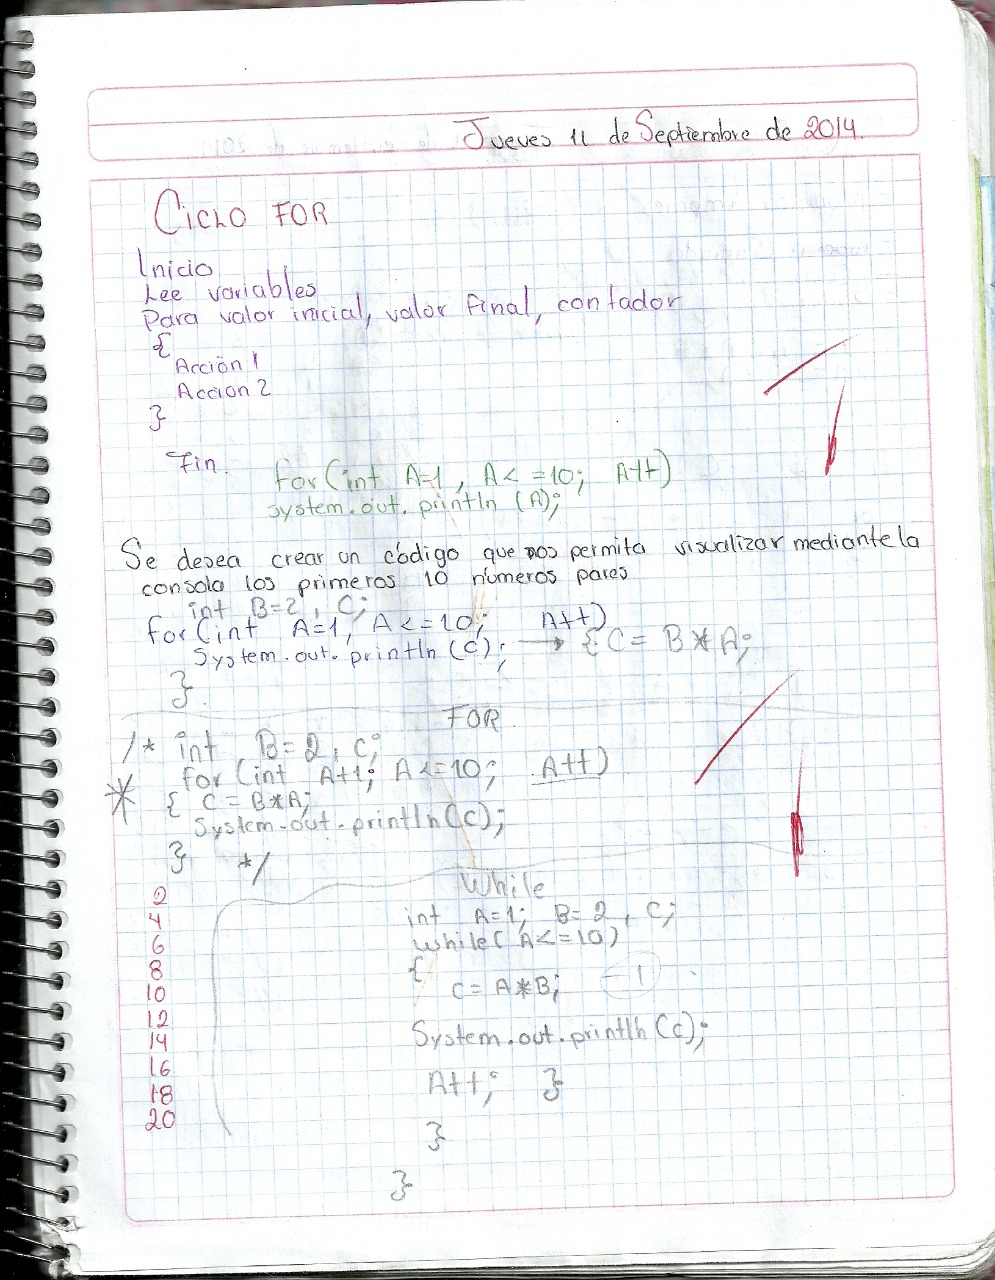 Jueves 11 de Septiembre de 2014.
Ciclo FOR
Inicio
Lee variables
Para valor inicial, valor final, contador
{
Acción 1
Accion 2
}
Fin.
for(int A=1, A<=10; A++)
system.out.println (A);
Se desea crear un código que nos permita visualizar mediante la
consola los primeros 10 números pares
int B=2, C;
for(int A=1, A<=10; A++)
System.out.println(c); → {C= B*A;
}
FOR
/* int B=2, C;
for(int A+1; A<=10; A++)
* { C=B*A;
System.out.println(c);
} */
2
4
6
8
10
12
14
16
18
20
While
int A=1; B=2, C;
while(A<=10)
{
C= A*B; -1
System.out.println(c);
A++; }
}
}